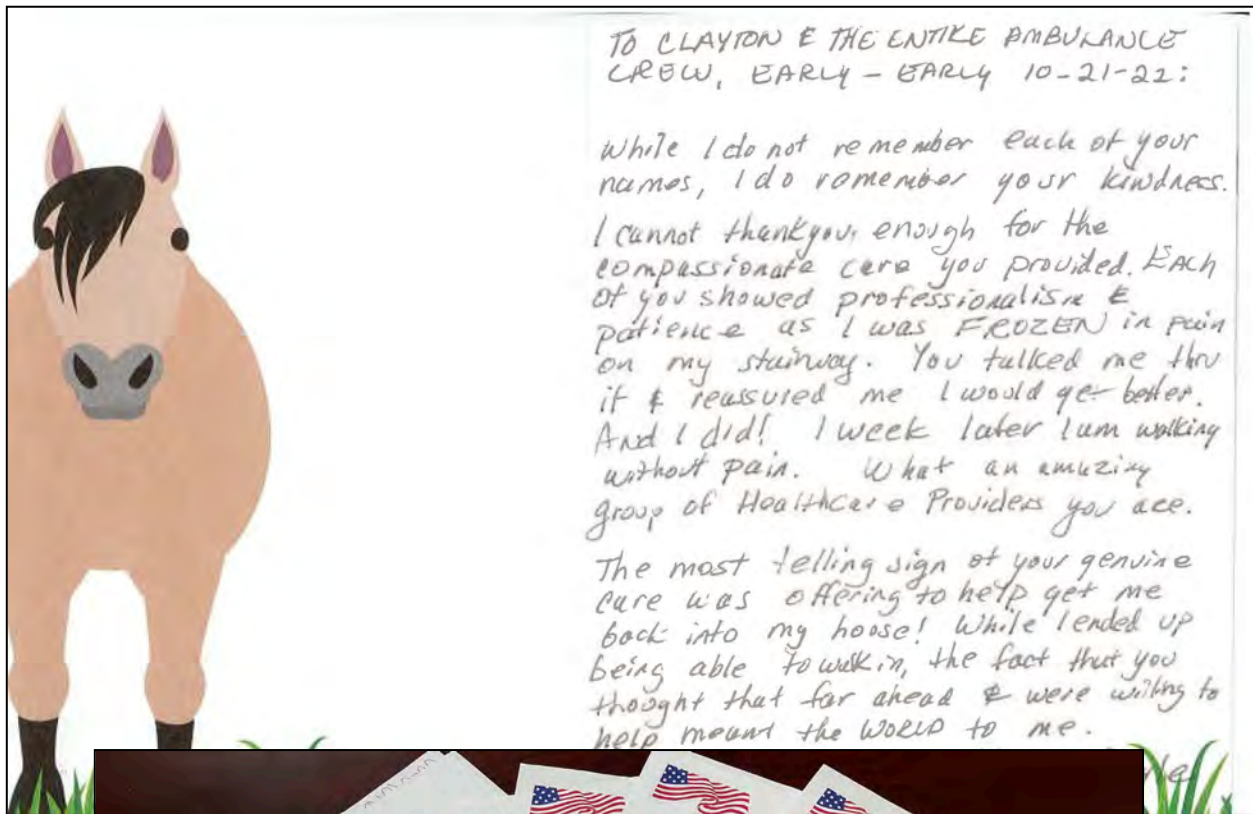 TO CLAYTON & THE ENTIRE AMBULANCE
CREW, EARLY - EARLY 10-21-22:
While I do not remember each of your
names, I do remember your kindness.
I cannot thank you, enough for the
compassionate care you provided. EACH
of you showed professionalism &
patience as I was FROZEN in pain
on my stairway. You talked me thru
it & reassured me I would get better.
And I did! 1 week later I am walking
without pain. What an amazing
group of Healthcare Providers you are.
The most telling sign of your genuine
care was offering to help get me
back into my house! While I ended up
being able to walk in, the fact that you
thought that far ahead & were willing to
help meant the WORLD to me.